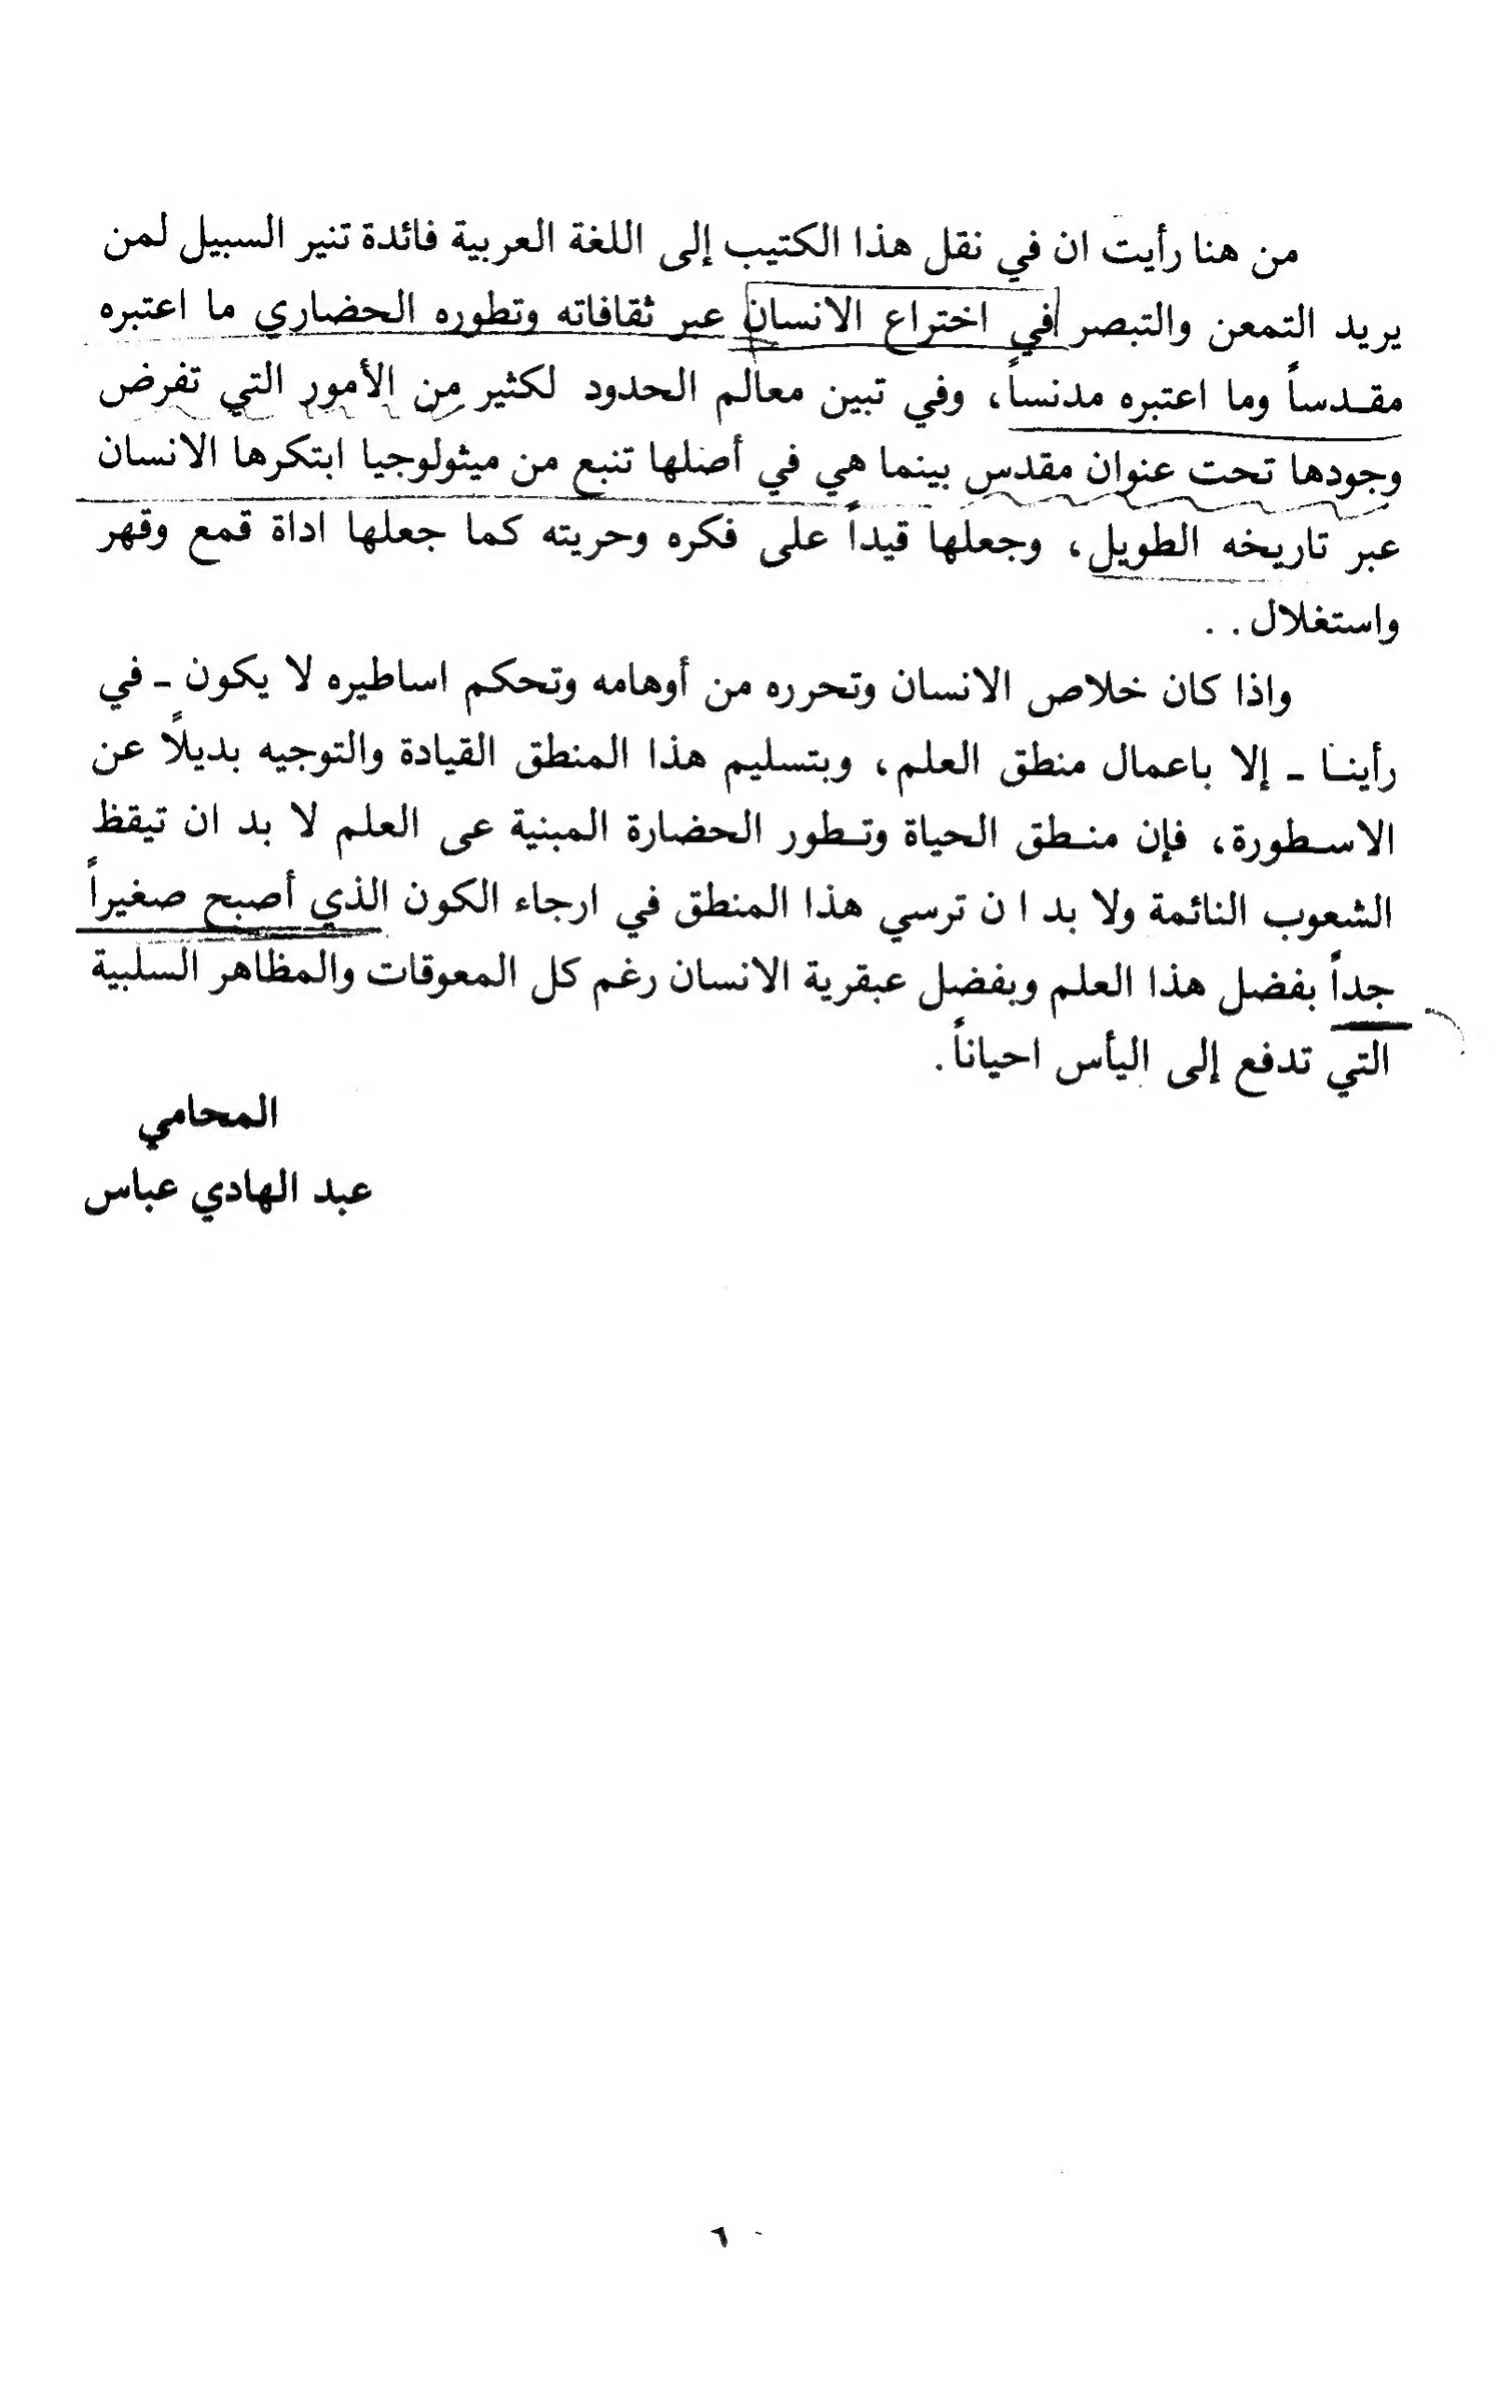 من هنا رأيت ان في نقل هذا الكتيب إلى اللغة العربية فائدة تنير السبيل لمن
يريد التمعن والتبصر في اختراع الانسان عبر ثقافاته وتطوره الحضاري ما اعتبره
مقدساً وما اعتبره مدنساً، وفي تبين معالم الحدود لكثير من الأمور التي تفرض
وجودها تحت عنوان مقدس بينما هي في أصلها تنبع من ميثولوجيا ابتكرها الانسان
عبر تاريخه الطويل، وجعلها قيداً على فكره وحريته كما جعلها اداة قمع وقهر
واستغلال..
واذا كان خلاص الانسان وتحرره من أوهامه وتحكم اساطيره لا يكون - في
رأينا - إلا باعمال منطق العلم، وبتسليم هذا المنطق القيادة والتوجيه بديلاً عن
الاسطورة، فإن منطق الحياة وتطور الحضارة المبنية عى العلم لا بد ان تيقظ
الشعوب النائمة ولا بد ا ن ترسي هذا المنطق في ارجاء الكون الذي أصبح صغيراً
جداً بفضل هذا العلم وبفضل عبقرية الانسان رغم كل المعوقات والمظاهر السلبية
التي تدفع إلى اليأس احياناً.
المحامي
عبد الهادي عباس
٦